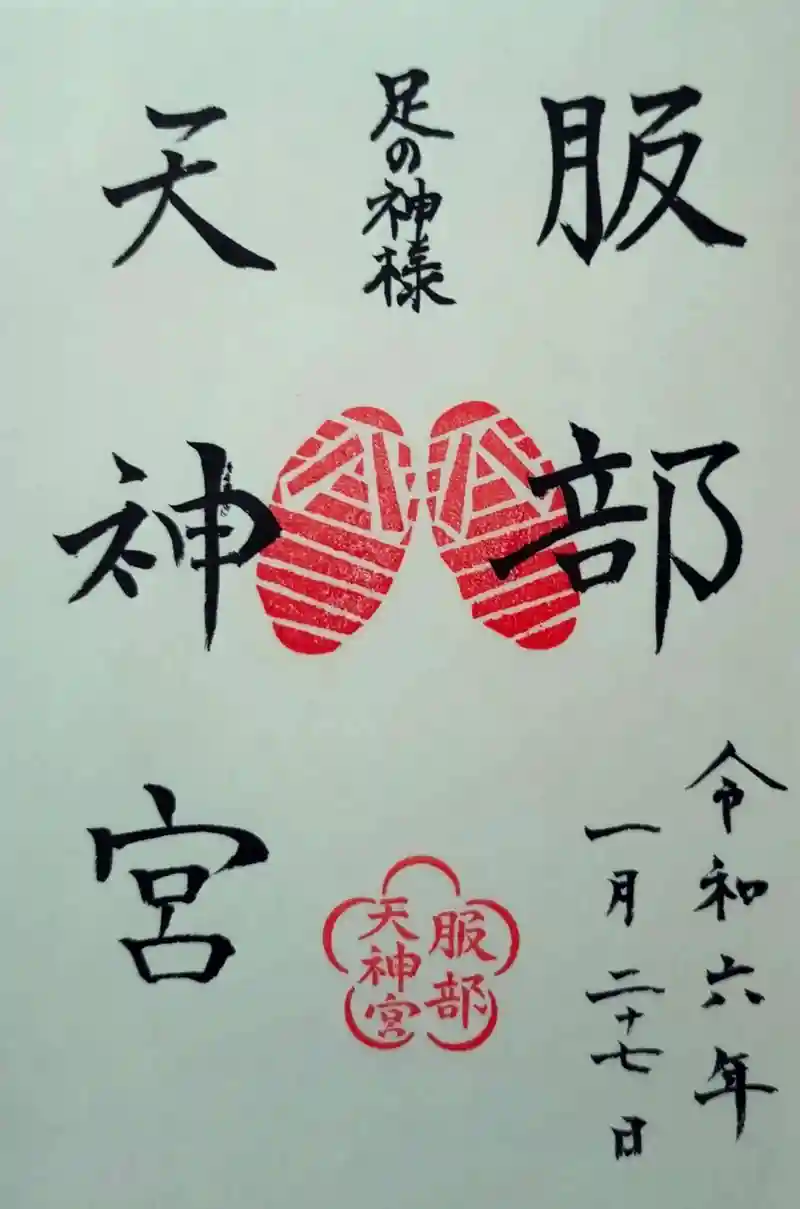 服部
令和六年
一月二十七日
足の神様
服部
天神宮
天神宮